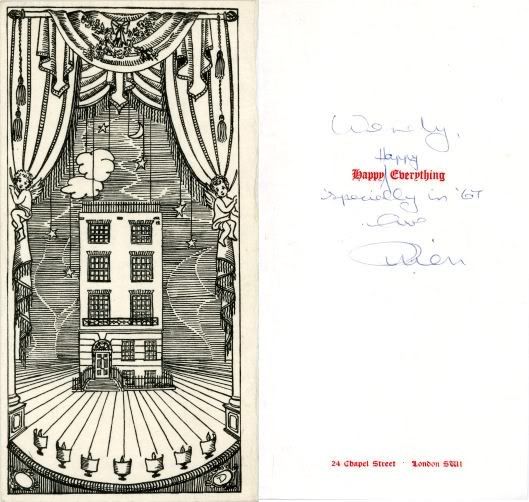 Wendy,
Happy
Happy Everything
Especially in '67
Love
Brian
24 Chapel Street · London SW1